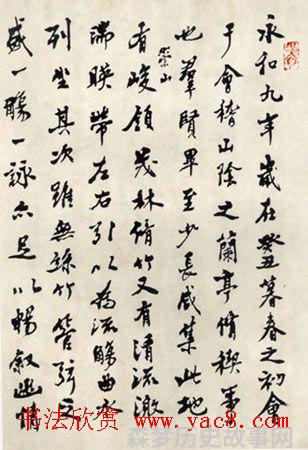 永和九年歲在癸丑暮春之初會
于會稽山陰之蘭亭脩稧事
也羣賢畢至少長咸集此地
有崇山峻領茂林脩竹又有清流激
湍暎帶左右引以為流觴曲水
列坐其次雖無絲竹管弦之
盛一觴一詠亦足以暢叙幽情
书法欣赏 www.yac8.com
森梦历史故事网